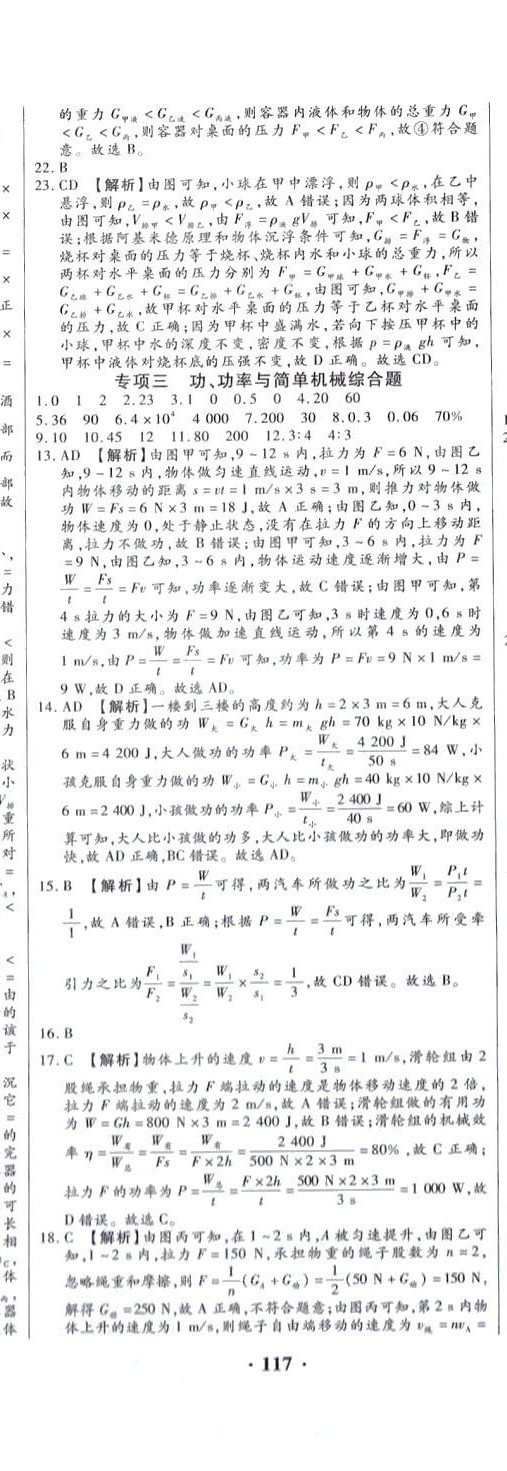 的重力 G甲液<G乙液<G丙液,则容器内液体和物体的总重力 G甲
<G乙<G丙,则容器对桌面的压力 F甲<F乙<F丙,故④符合题
意。故选 B。
22.B
23.CD 【解析】由图可知,小球在甲中漂浮,则 ρ甲<ρ水,在乙中
悬浮,则 ρ乙=ρ水,故 ρ甲<ρ乙,故 A 错误;因为两球体积相等,
由图可知,V排甲<V排乙,由 F浮=ρ液 gV排 可知,F甲<F乙,故 B 错
误;根据阿基米德原理和物体沉浮条件可知,G排=F浮=G物,
烧杯对桌面的压力等于烧杯、烧杯内水和小球的总重力,所以
两杯对水平桌面的压力分别为 F甲=G甲球+G甲水+G杯,F乙=
G乙球+G乙水+G杯=G乙排+G乙水+G杯,由图可知,G甲排+G甲水=
G乙排+G乙水,故甲杯对水平桌面的压力等于乙杯对水平桌面
的压力,故 C 正确;因为甲杯中盛满水,若向下按压甲杯中的
小球,甲杯中水的深度不变,密度不变,根据 p=ρ液 gh 可知,
甲杯中液体对烧杯底的压强不变,故 D 正确。故选 CD。
专项三 功、功率与简单机械综合题
1.0 1 2 2.23 3.1 0 0.5 0 4.20 60
5.36 90 6.4×10⁴ 4 000 7.200 30 8.0.3 0.06 70%
9.10 10.45 12 11.80 200 12.3∶4 4∶3
13.AD 【解析】由图甲可知,9~12 s 内,拉力为 F=6 N,由图乙
知,9~12 s 内,物体做匀速直线运动,v=1 m/s,所以 9~12 s
内物体移动的距离 s=vt=1 m/s×3 s=3 m,则推力对物体做
功 W=Fs=6 N×3 m=18 J,故 A 正确;由图乙知,0~3 s 内,
物体速度为 0,处于静止状态,没有在拉力 F 的方向上移动距
离,拉力不做功,故 B 错误;由图甲可知,3~6 s 内,拉力为 F
=9 N,由图乙知,3~6 s 内,物体运动速度逐渐增大,由 P=
W/t=Fs/t=Fv 可知,功率逐渐变大,故 C 错误;由图甲可知,第
4 s拉力的大小为 F=9 N,由图乙可知,3 s 时速度为 0,6 s 时
速度为 3 m/s,物体做加速直线运动,所以第 4 s 的速度为
1 m/s,由 P=W/t=Fs/t=Fv 可知,功率为 P=Fv=9 N×1 m/s=
9 W,故 D 正确。故选 AD。
14.AD 【解析】一楼到三楼的高度约为 h=2×3 m=6 m,大人克
服自身重力做的功 W大=G大 h=m大 gh=70 kg×10 N/kg×
6 m=4 200 J,大人做功的功率 P大=W大/t大=4 200 J/50 s=84 W,小
孩克服自身重力做的功 W小=G小 h=m小 gh=40 kg×10 N/kg×
6 m=2 400 J,小孩做功的功率 P小=W小/t小=2 400 J/40 s=60 W,综上计
算可知,大人比小孩做的功多,大人比小孩做功的功率大,即做功
快,故 AD 正确,BC 错误。故选 AD。
15.B 【解析】由 P=W/t可得,两汽车所做功之比为W₁/W₂=P₁t/P₂t=
1/1,故 A 错误,B 正确;根据 P=W/t=Fs/t可得,两汽车所受牵
引力之比为F₁/F₂=(W₁/s₁)/(W₂/s₂)=W₁/W₂×s₂/s₁=1/3,故 CD 错误。故选 B。
16.B
17.C 【解析】物体上升的速度 v=h/t=3 m/3 s=1 m/s,滑轮组由 2
股绳承担物重,拉力 F 端拉动的速度是物体移动速度的 2 倍,
拉力 F 端拉动的速度为 2 m/s,故 A 错误;滑轮组做的有用功
为 W=Gh=800 N×3 m=2 400 J,故 B 错误;滑轮组的机械效
率 η=W有/W总=W有/Fs=W有/F×2h=2 400 J/500 N×2×3 m=80%,故 C 正确;
拉力 F 的功率为 P=W总/t=F×2h/t=500 N×2×3 m/3 s=1 000 W,故
D 错误。故选 C。
18.C 【解析】由图丙可知,在 1~2 s 内,A 被匀速提升,由图乙可
知,1~2 s 内,拉力 F=150 N,承担物重的绳子股数为 n=2,
忽略绳重和摩擦,则 F=1/n(G_A+G动)=1/2(50 N+G动)=150 N,
解得 G动=250 N,故 A 正确,不符合题意;由图丙可知,第 2 s 内物
体上升的速度为 1 m/s,则绳子自由端移动的速度为 v绳=nv_A=
· 117 ·